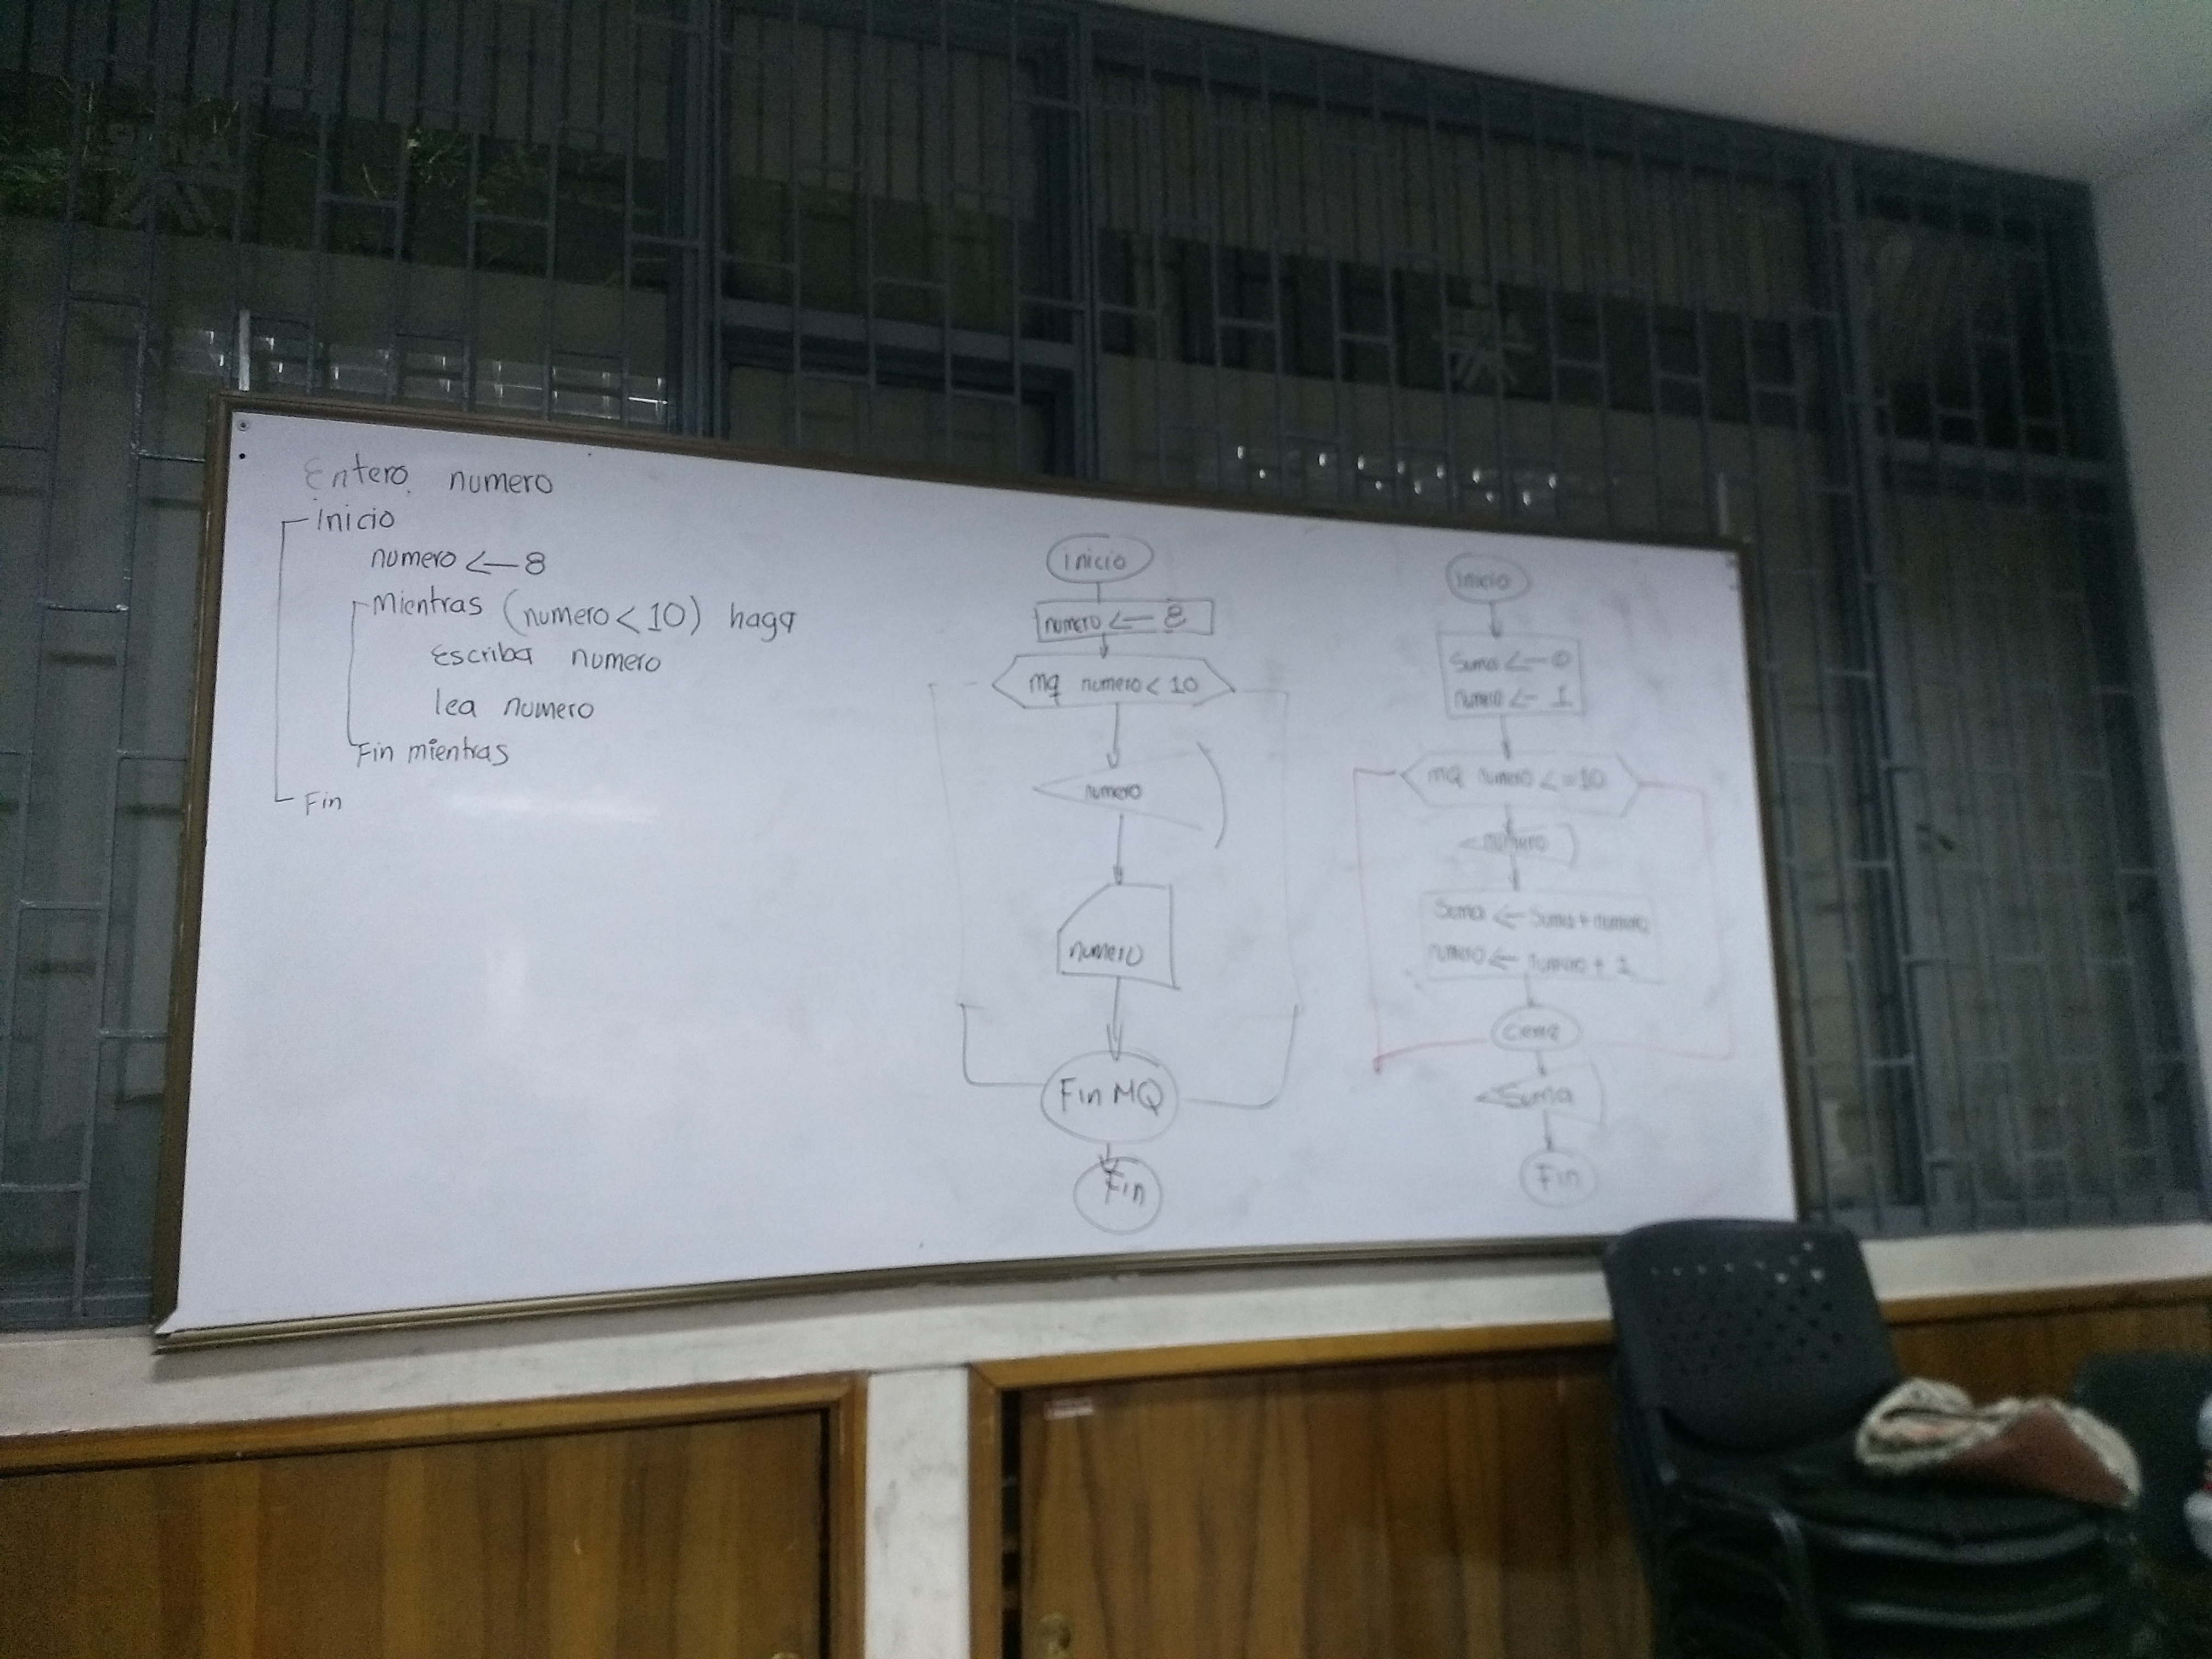 Entero numero
Inicio
numero <— 8
Mientras (numero < 10) haga
Escriba numero
lea numero
Fin mientras
Fin
inicio
numero <— 8
mq numero < 10
numero
numero
Fin MQ
Fin
inicio
Suma <— 0
numero <— 1
mq numero <= 10
numero
Suma <— Suma + numero
numero <— numero + 1
Suma
Fin